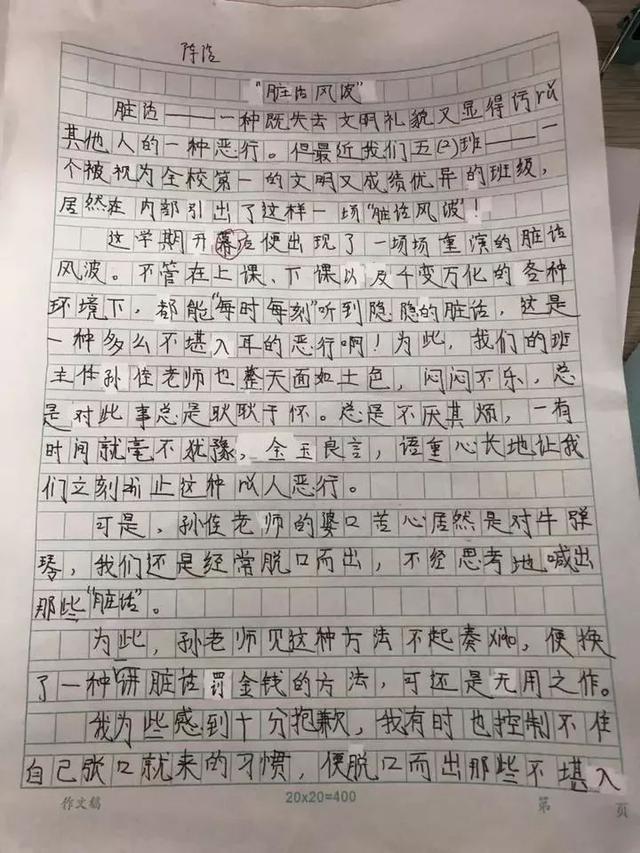 陈浩
"脏话风波"
脏话——一种既失去文明礼貌又显得污以
其他人的一种恶行。但最近我们五(2)班——一
个被视为全校第一的文明又成绩优异的班级,
居然在内部引出了这样一场"脏话风波"!
这学期开幕后便出现了一场场重演的脏话
风波。不管在上课、下课以及千变万化的各种
环境下,都能"每时每刻"听到隐隐的脏话,这是
一种多么不堪入耳的恶行啊!为此,我们的班
主任孙俊老师也整天面如土色,闷闷不乐,总
是对此事总是耿耿于怀。总是不厌其烦,一有
时间就毫不犹豫,金玉良言,语重心长地让我
们立刻制止这种以人恶行。
可是,孙俊老师的婆口苦心居然是对牛弹
琴,我们还是经常脱口而出,不经思考地喊出
那些"脏话"。
为此,孙老师见这种方法不起奏效,便换
了一种讲脏话罚金钱的方法,可还是无用之作。
我为些感到十分抱歉,我有时也控制不住
自己张口就来的习惯,便脱口而出那些不堪入
作文稿
20x20=400
第 页